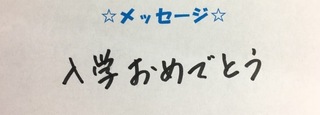 ☆メッセージ☆
入学おめでとう